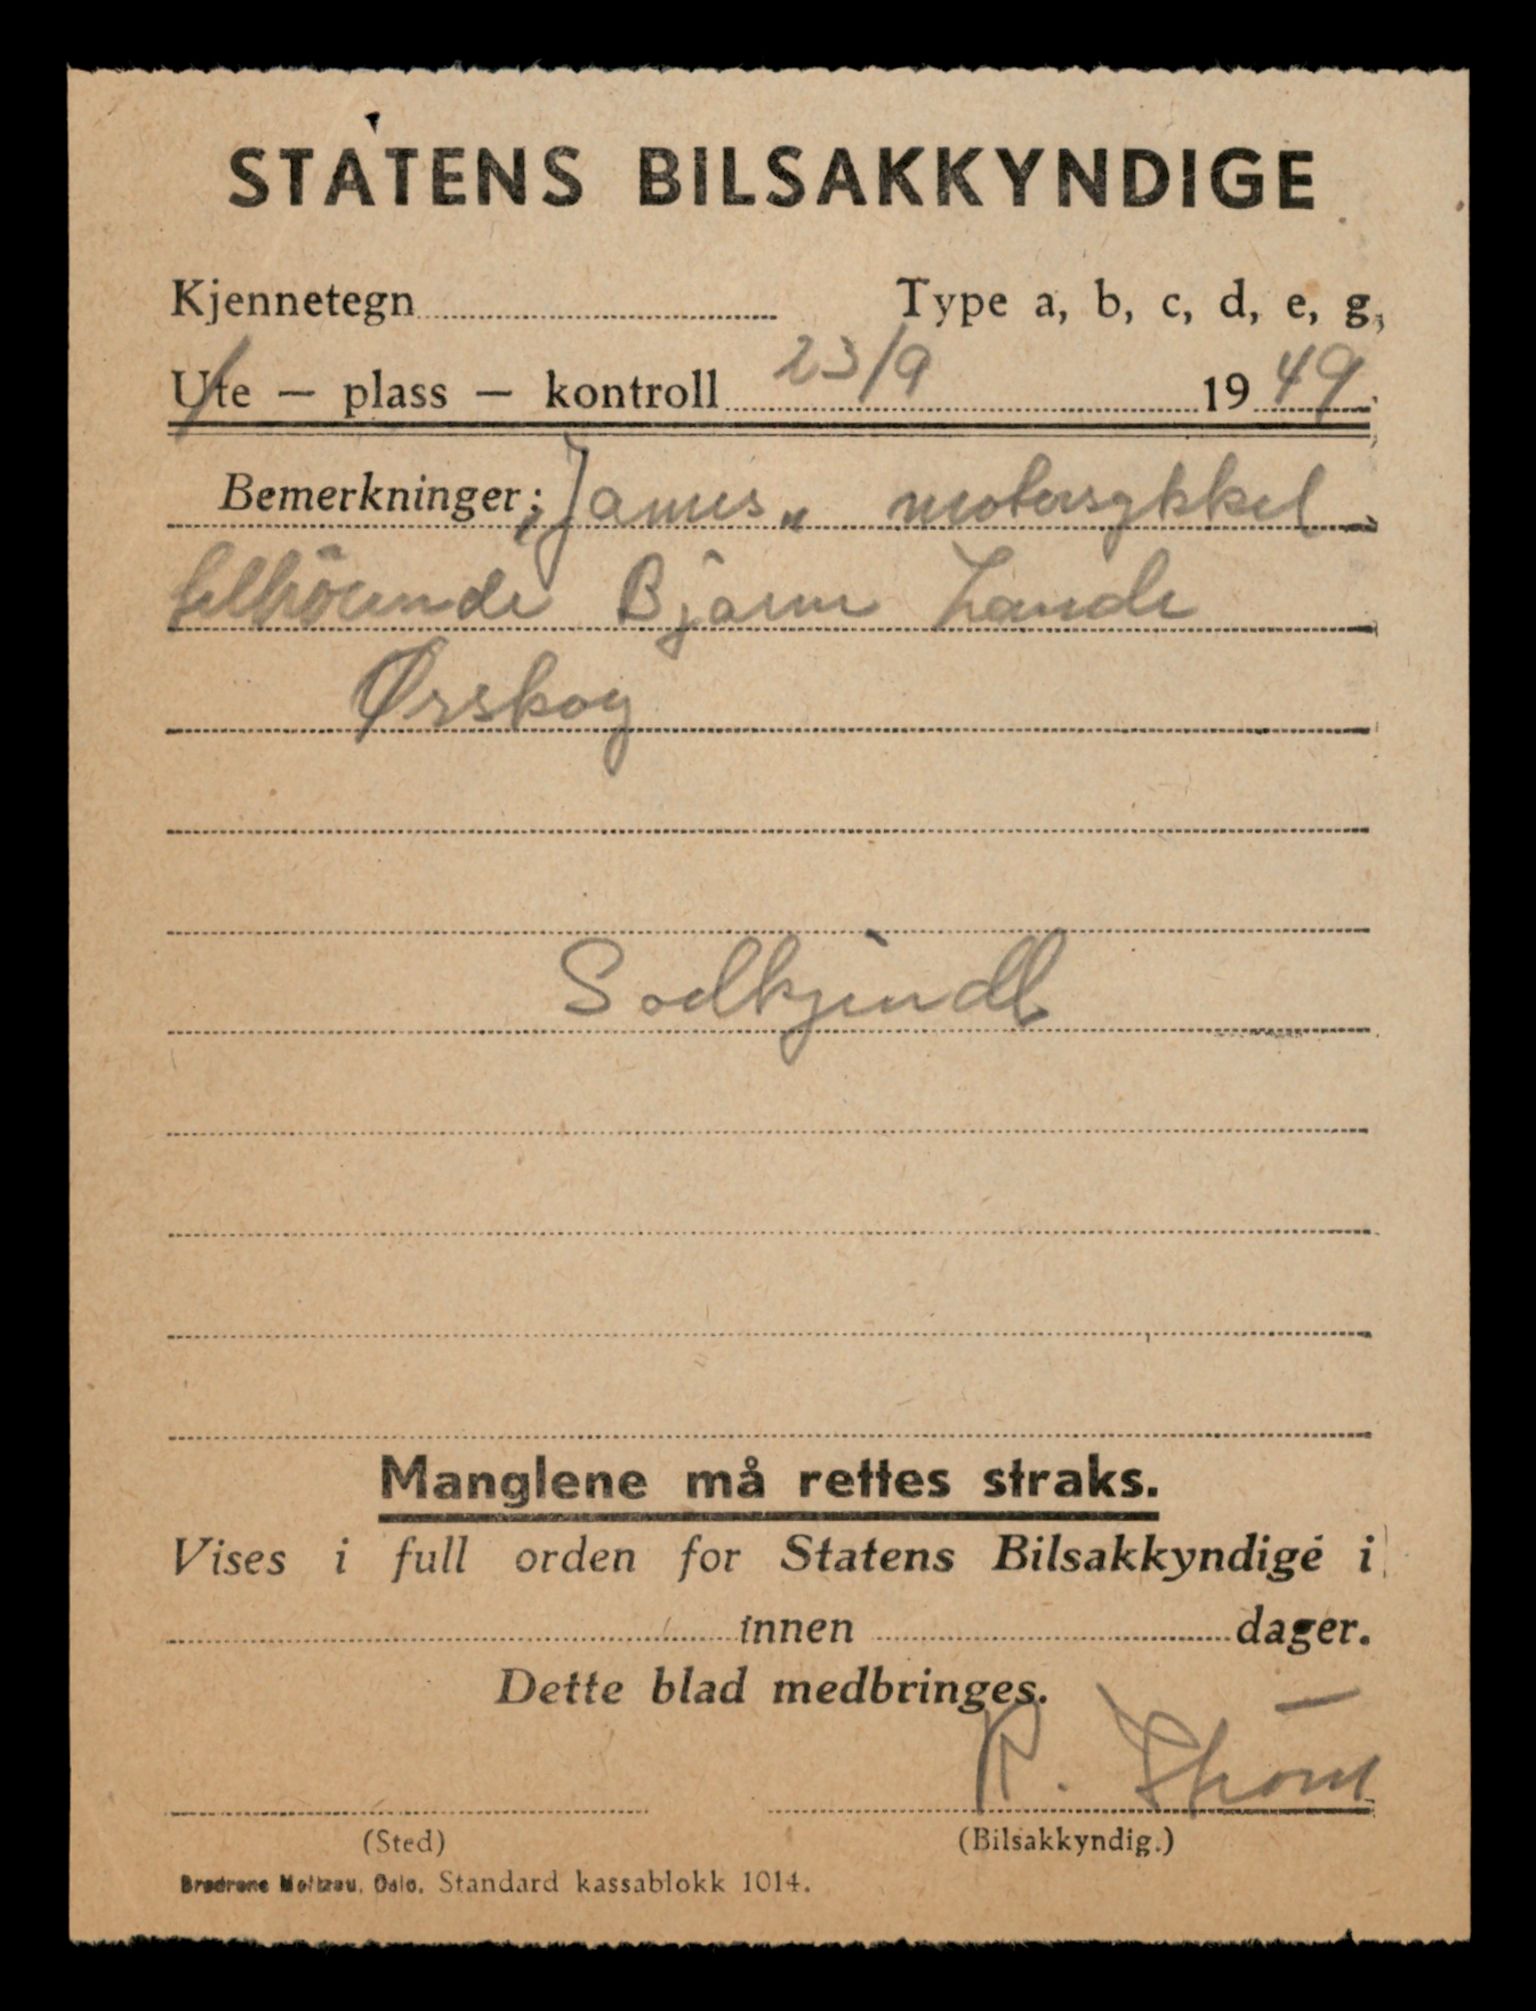 STATENS BILSAKKYNDIGE
Kjennetegn Type a, b, c, d, e, g,
Ute — plass — kontroll 23/9 1949
Bemerkninger: „James„ motorsykkel
tilhörende Bjarne Lande
Ørskog
Godkjendt
Manglene må rettes straks.
Vises i full orden for Statens Bilsakkyndige i
innen dager.
Dette blad medbringes.
K. Strøm
(Sted) (Bilsakkyndig.)
Brødrene Moltzau, Oslo. Standard kassablokk 1014.